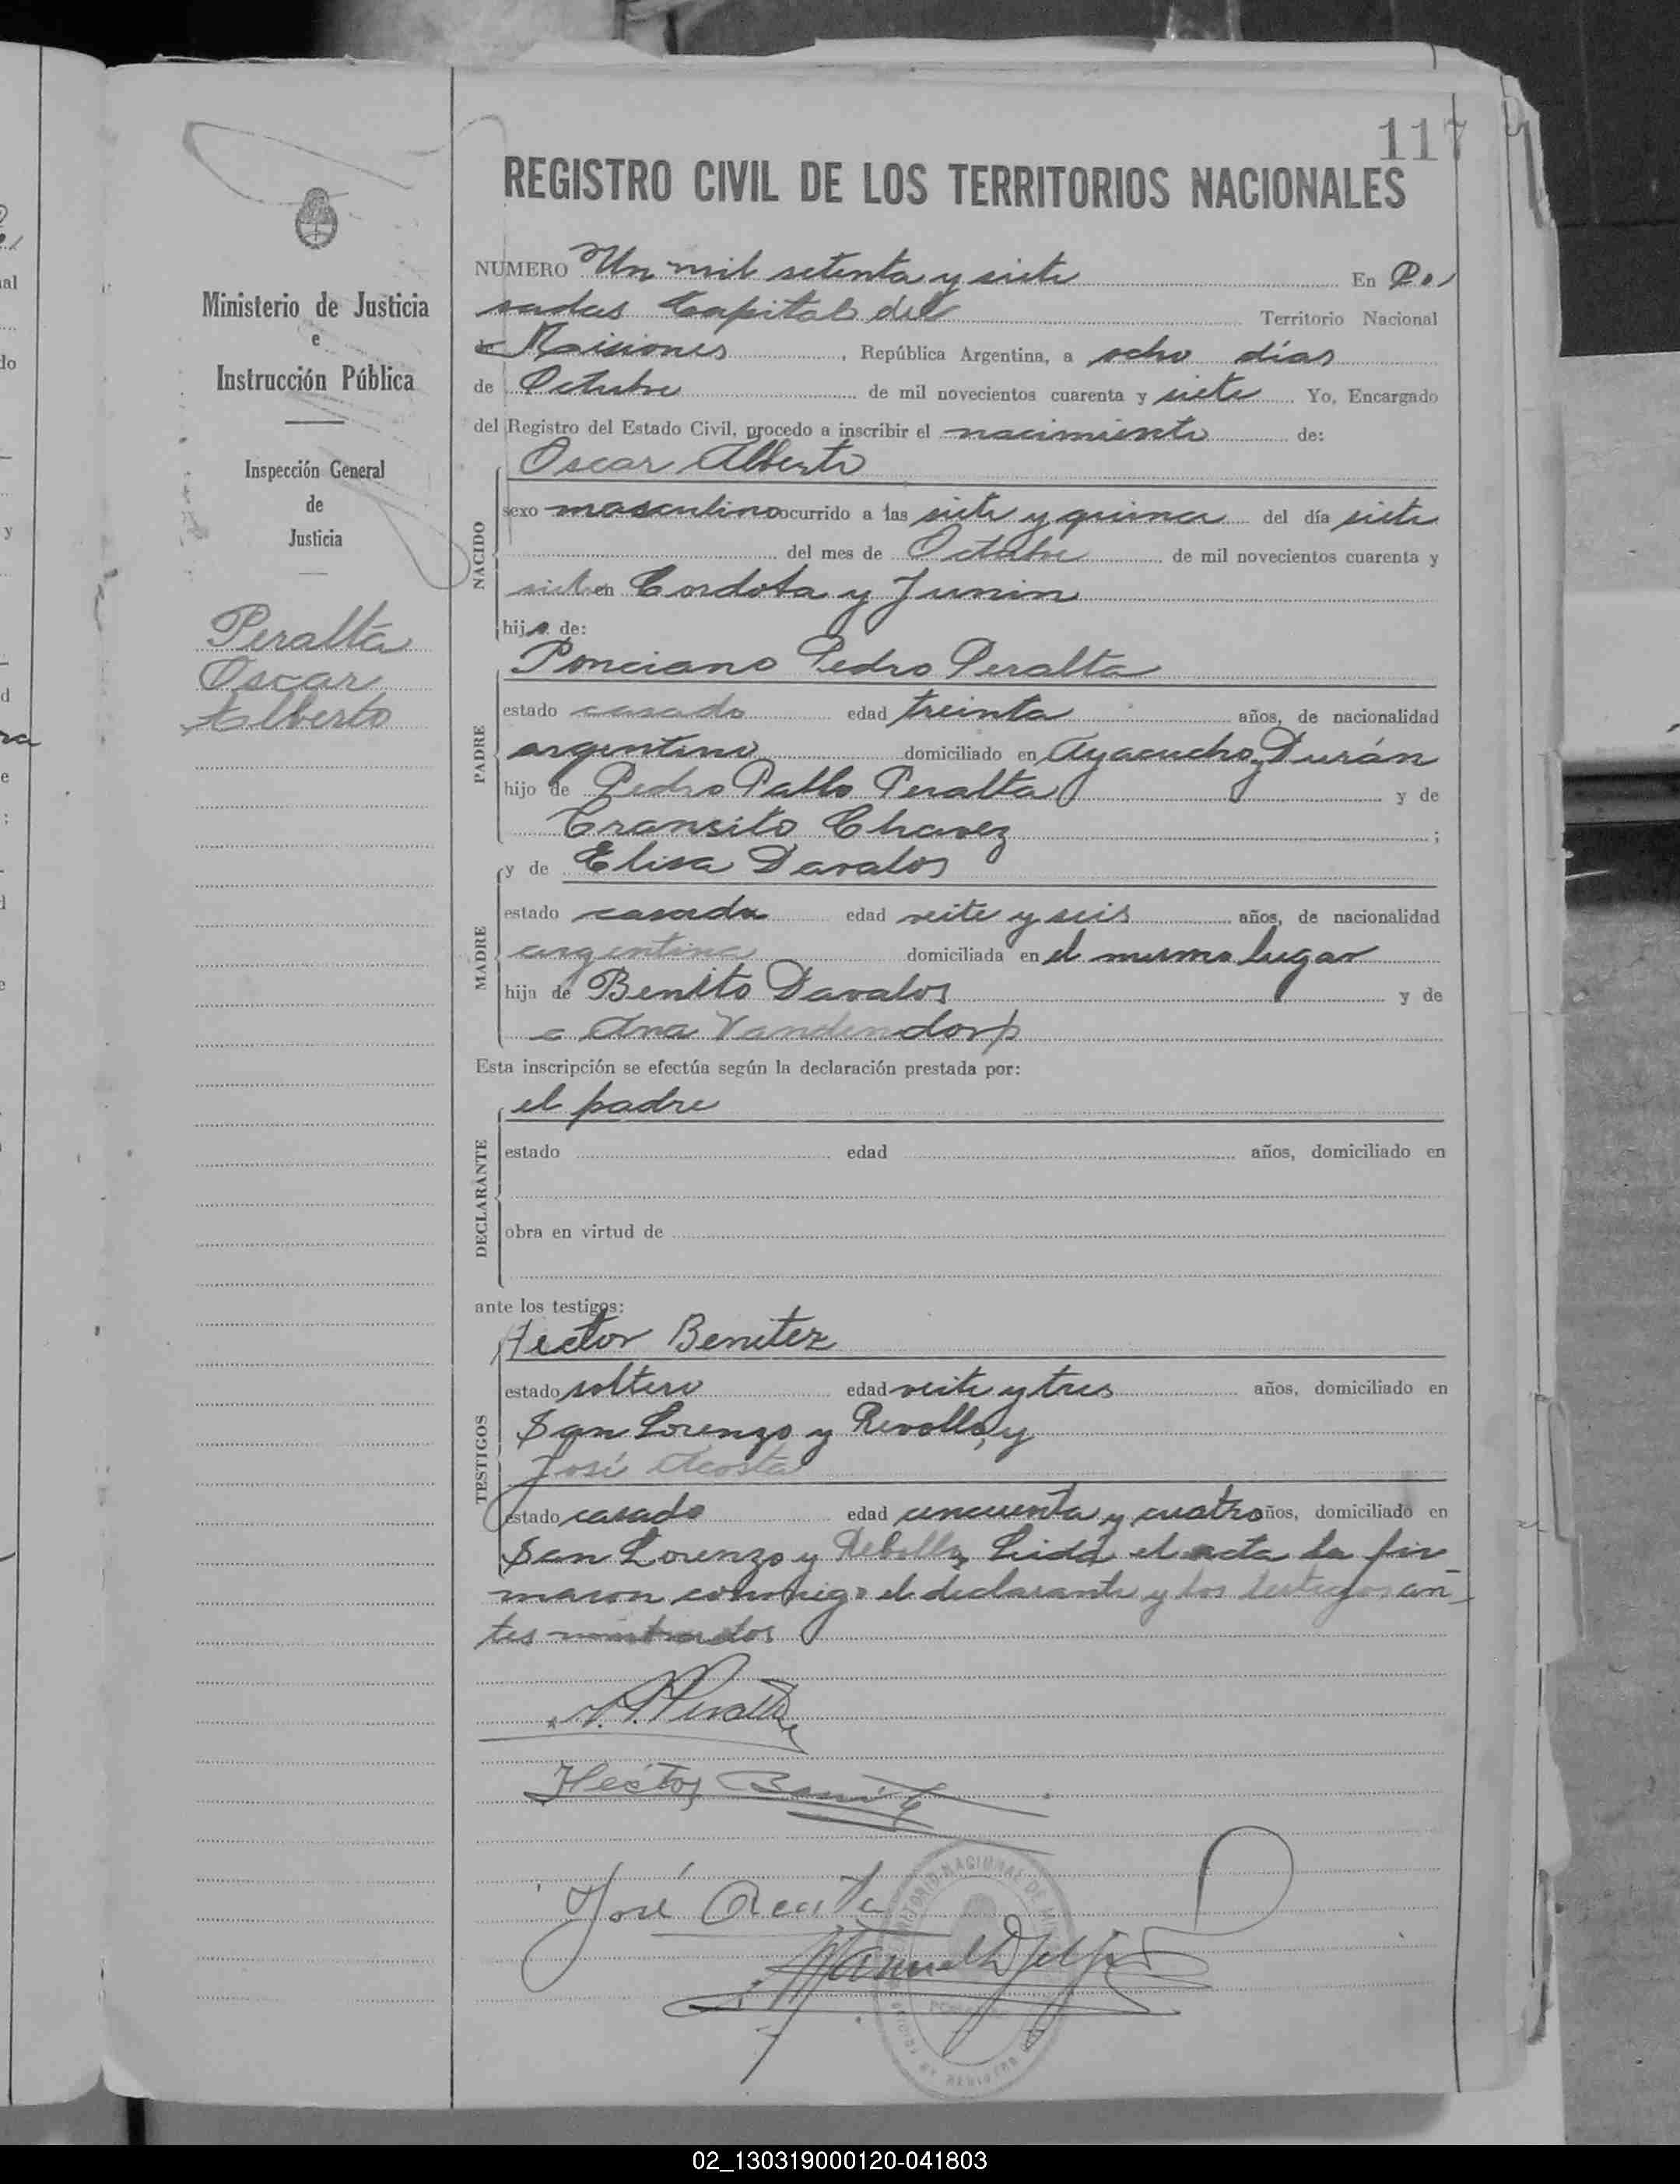 117
REGISTRO CIVIL DE LOS TERRITORIOS NACIONALES
Ministerio de Justicia
e
Instrucción Pública
Inspección General
de
Justicia
Peralta
Oscar
Alberto
NUMERO Un mil setenta y siete En Po,
sadas Capital del Territorio Nacional
de Misiones, República Argentina, a ocho días
de Octubre de mil novecientos cuarenta y siete Yo, Encargado
del Registro del Estado Civil, procedo a inscribir el nacimiento de:
Oscar Alberto
NACIDO
sexo masculino ocurrido a las siete y quince del día siete
del mes de Octubre de mil novecientos cuarenta y
siete en Cordoba y Junin
hijo de:
Ponciano Pedro Peralta
PADRE
estado casado edad treinta años, de nacionalidad
argentino domiciliado en Ayacucho y Durán
hijo de Pedro Pablo Peralta y de
Transito Chavez ;
y de Elisa Davalos
MADRE
estado casada edad veite y seis años, de nacionalidad
argentina domiciliada en el mismo lugar
hija de Benito Davalos y de
Ana Vandendorp
Esta inscripción se efectúa según la declaración prestada por:
el padre
DECLARANTE
estado edad años, domiciliado en
obra en virtud de
ante los testigos:
Hector Benitez
TESTIGOS
estado soltero edad veite y tres años, domiciliado en
San Lorenzo y Revollo, y
José Acosta
estado casado edad cincuenta y cuatro años, domiciliado en
San Lorenzo y Rebollo, Leida el acta la fir-
maron conmigo el declarante y los testigos an-
tes nombrados
Peralta
Héctor Benitez
José Acosta
Manuel
02_130319000120-041803